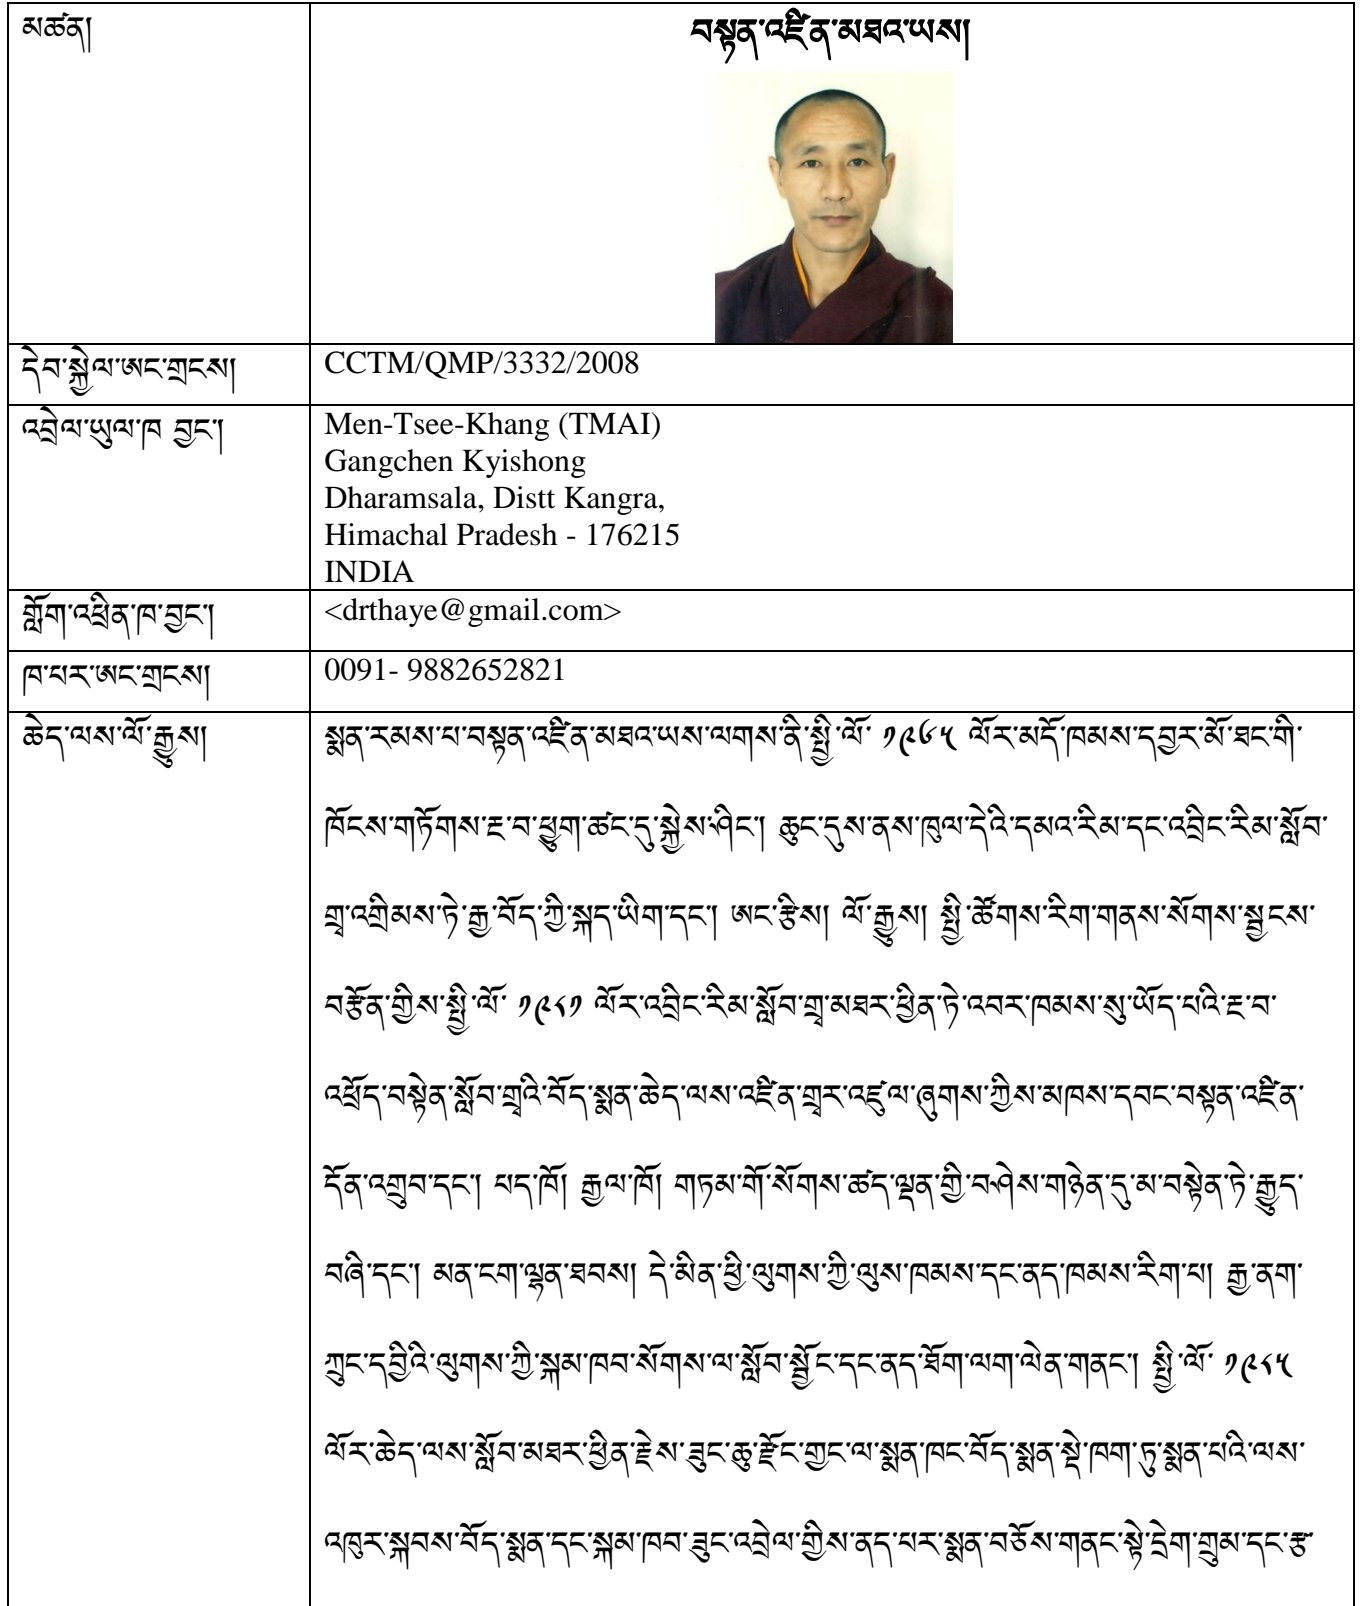 མཚན།
བསྟན་འཛིན་མཐའ་ཡས།
དེབ་སྐྱེལ་ཨང་གྲངས།
CCTM/QMP/3332/2008
འབྲེལ་ཡུལ་ཁ བྱང་།
Men-Tsee-Khang (TMAI)
Gangchen Kyishong
Dharamsala, Distt Kangra,
Himachal Pradesh - 176215
INDIA
གློག་འཕྲིན་ཁ་བྱང་།
<drthaye@gmail.com>
ཁ་པར་ཨང་གྲངས།
0091- 9882652821
ཆེད་ལས་ལོ་རྒྱུས།
སྨན་རམས་པ་བསྟན་འཛིན་མཐའ་ཡས་ལགས་ནི་སྤྱི་ལོ་ ༡༩༦༥ ལོར་མདོ་ཁམས་དབྱར་མོ་ཐང་གི་
ཁོངས་གཏོགས་རྔ་བ་ཕྱུག་ཚང་དུ་སྐྱེས་ཤིང་། ཆུང་དུས་ནས་ཁུལ་དེའི་དམའ་རིམ་དང་འབྲིང་རིམ་སློབ་
གྲྭ་འགྲིམས་ཏེ་རྒྱ་བོད་ཀྱི་སྐད་ཡིག་དང་། ཨང་རྩིས། ལོ་རྒྱུས། སྤྱི་ཚོགས་རིག་གནས་སོགས་སྦྱངས་
བརྩོན་གྱིས་སྤྱི་ལོ་ ༡༩༨༡ ལོར་འབྲིང་རིམ་སློབ་གྲྭ་མཐར་ཕྱིན་ཏེ་འབར་ཁམས་སུ་ཡོད་པའི་རྔ་བ་
འཕྲོད་བསྟེན་སློབ་གྲྭའི་བོད་སྨན་ཆེད་ལས་འཛིན་གྲྭར་འཛུལ་ཞུགས་ཀྱིས་མཁས་དབང་བསྟན་འཛིན་
དོན་འགྲུབ་དང་། པད་ཁོ། རྒྱལ་ཁོ། གཏམ་གོ་སོགས་ཚད་ལྡན་གྱི་བཤེས་གཉེན་དུ་མ་བསྟེན་ཏེ་རྒྱུད་
བཞི་དང་། མན་ངག་ལྷན་ཐབས། དེ་མིན་ཕྱི་ལུགས་ཀྱི་ལུས་ཁམས་དང་ནད་ཁམས་རིག་པ། རྒྱ་ནག་
ཀྲུང་དབྱིའི་ལུགས་ཀྱི་སྐམ་ཁབ་སོགས་ལ་སློབ་སྦྱོང་དང་ནད་ཐོག་ལག་ལེན་གནང་། སྤྱི་ལོ་ ༡༩༨༥
ལོར་ཆེད་ལས་སློབ་མཐར་ཕྱིན་རྗེས་ཟུང་ཆུ་རྫོང་གྱང་ལ་སྨན་ཁང་བོད་སྨན་སྡེ་ཁག་ཏུ་སྨན་པའི་ལས་
འཁུར་སྐབས་བོད་སྨན་དང་སྐམ་ཁབ་ཟུང་འབྲེལ་གྱིས་ནད་པར་སྨན་བཅོས་གནང་སྟེ་དྲེག་གྲུམ་དང་རྩ་